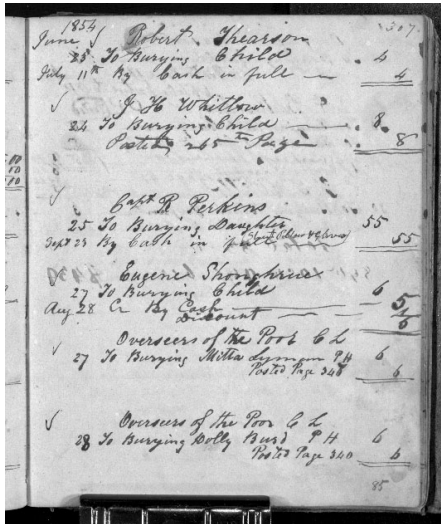 307.
1854
June Robert
23 To Burying Child 4
July 11th By Cash in full 4
J H Whitlow
24 To Burying Child 8
Posted 245th Page 8
Capt R Perkins
25 To Burying Daughter 55
Sept 23 By Cash in full 55
Eugene
27 To Burying Child 6
Aug 28 Cr By Cash 5
Discount
6
Overseers of the Poor C L
27 To Burying Lyman P H 6
Posted Page 340 6
Overseers of the Poor C L
28 To Burying Dolly Burd P H 6
Posted Page 340 6
85